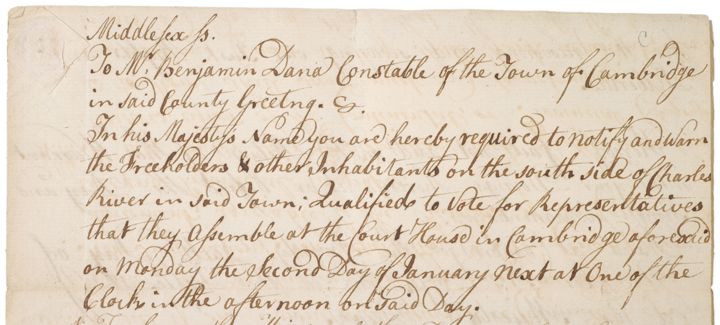 Middlesex ss.
To Mr. Benjamin Dana Constable of the Town of Cambridge
in said County Greetng. &.
In his Majestys Name you are hereby required to notify and Warn
the Freeholders & other Inhabitants on the south side of Charles
River in said Town; Qualified to Vote for Representatives
that they Assemble at the Court House in Cambridge aforesaid
on Monday the second Day of January next at One of the
Clock in the afternoon on said Day.